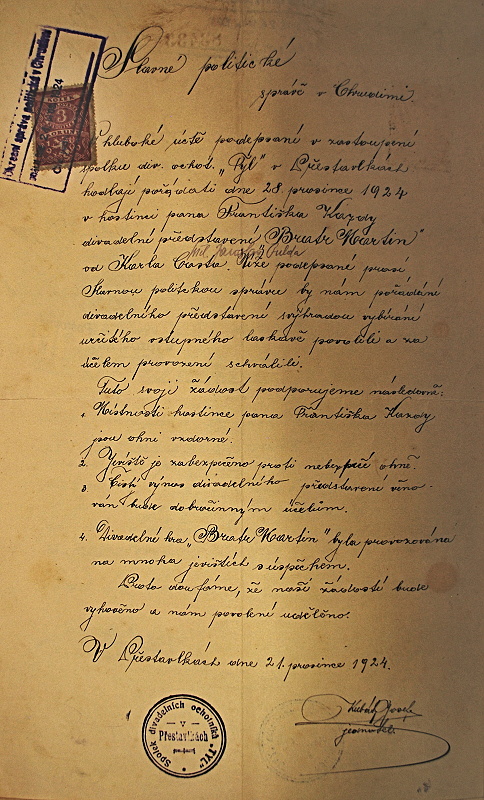 Slavné politické
správě v Chrudimi.
Okresní správa politická v Chrudimi
24
3
V hluboké úctě podepsaní v zastoupení
spolku div. ochot. „Tyl" v Přestavlkách
hodlají pořádati dne 28. prosince 1924
v hostinci pana Františka Kazdy
divadelní představení „Bratr Martin"
od Karla Costa. Níže podepsané prosí
Slavnou politickou správu by nám pořádání
divadelního představení s výhradou vybírání
určitého vstupného laskavě povolili a za
účelem provození schválili.
Tuto svoji žádost podporujeme následovně:
1. Místnosti hostince pana Františka Kazdy
jsou ohni vzdorné.
2. Jeviště je zabezpečeno proti nebezpečí ohně.
3. Čistý výnos divadelního představení věno-
ván bude dobročinným účelům.
4. Divadelní hra „Bratr Martin" byla provozována
na mnoha jevištích s úspěchem.
Proto doufáme, že naší žádosti bude
vyhověno a nám povolení uděleno.
V Přestavlkách dne 21. prosince 1924.
Spolek divadelních ochotníků
v
Přestavlkách
"TYL"
jednatel